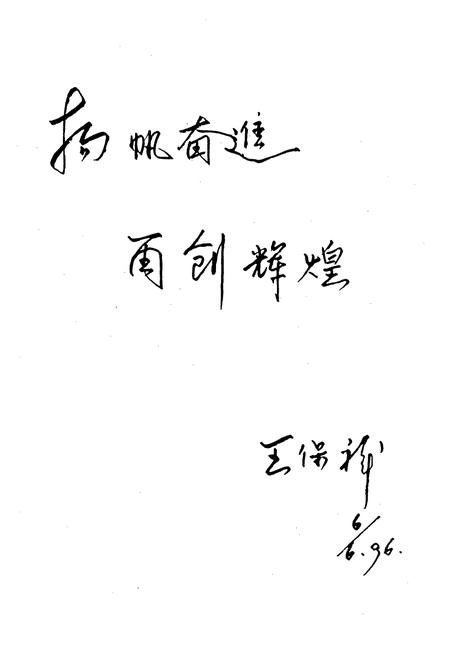 扬帆奋進
再创辉煌
王保祥
6/6.96.